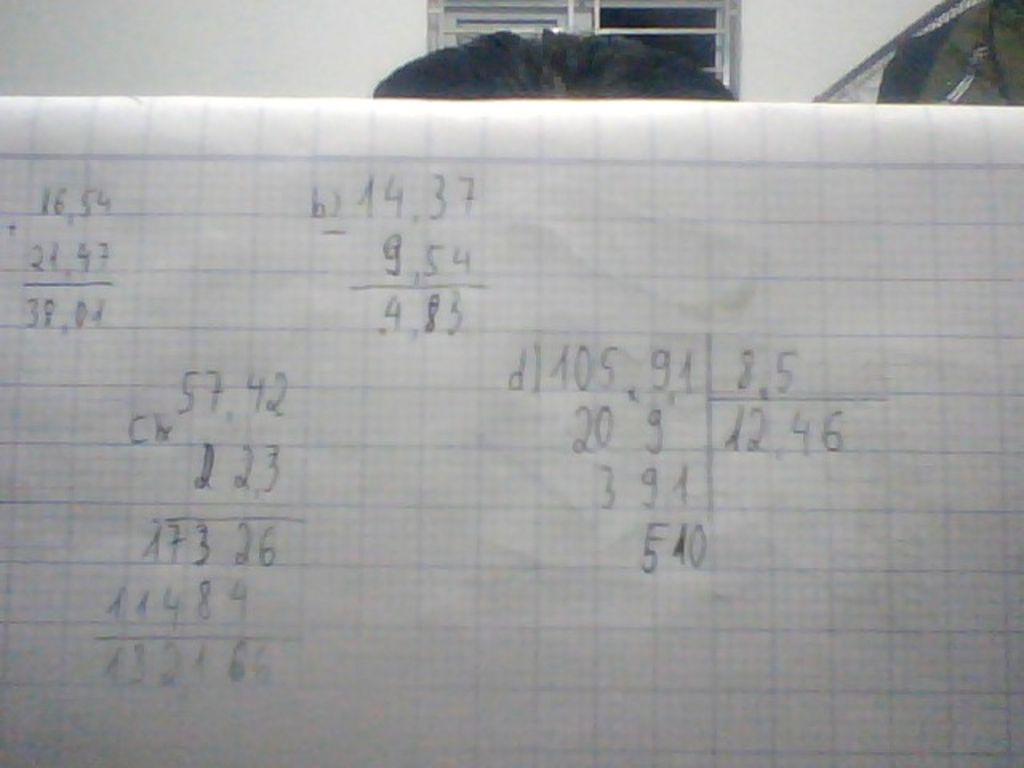 16,54
+
21,47
38,01
b) 14,37
-
9,54
4,83
57,42
c) x
2 2,3
173 26
11484
132166
d) 105,9,1 8,5
20 9 12,46
3 91
510